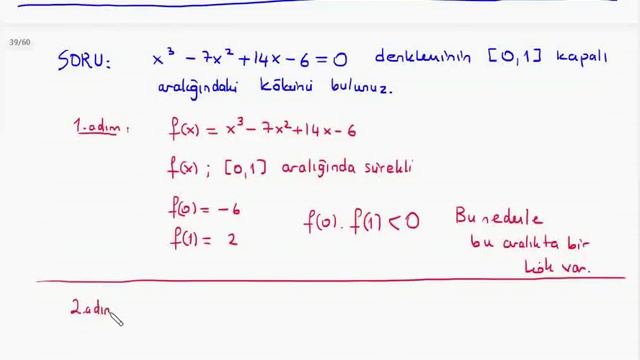 39/60
SORU: x³ - 7x² + 14x - 6 = 0 denkleminin [0,1] kapalı
aralığındaki kökünü bulunuz.
1.adım: f(x) = x³ - 7x² + 14x - 6
f(x) ; [0,1] aralığında sürekli
f(0) = -6
f(1) = 2
f(0). f(1) < 0
Bu nedenle
bu aralıkta bir
kök var.
2.adım